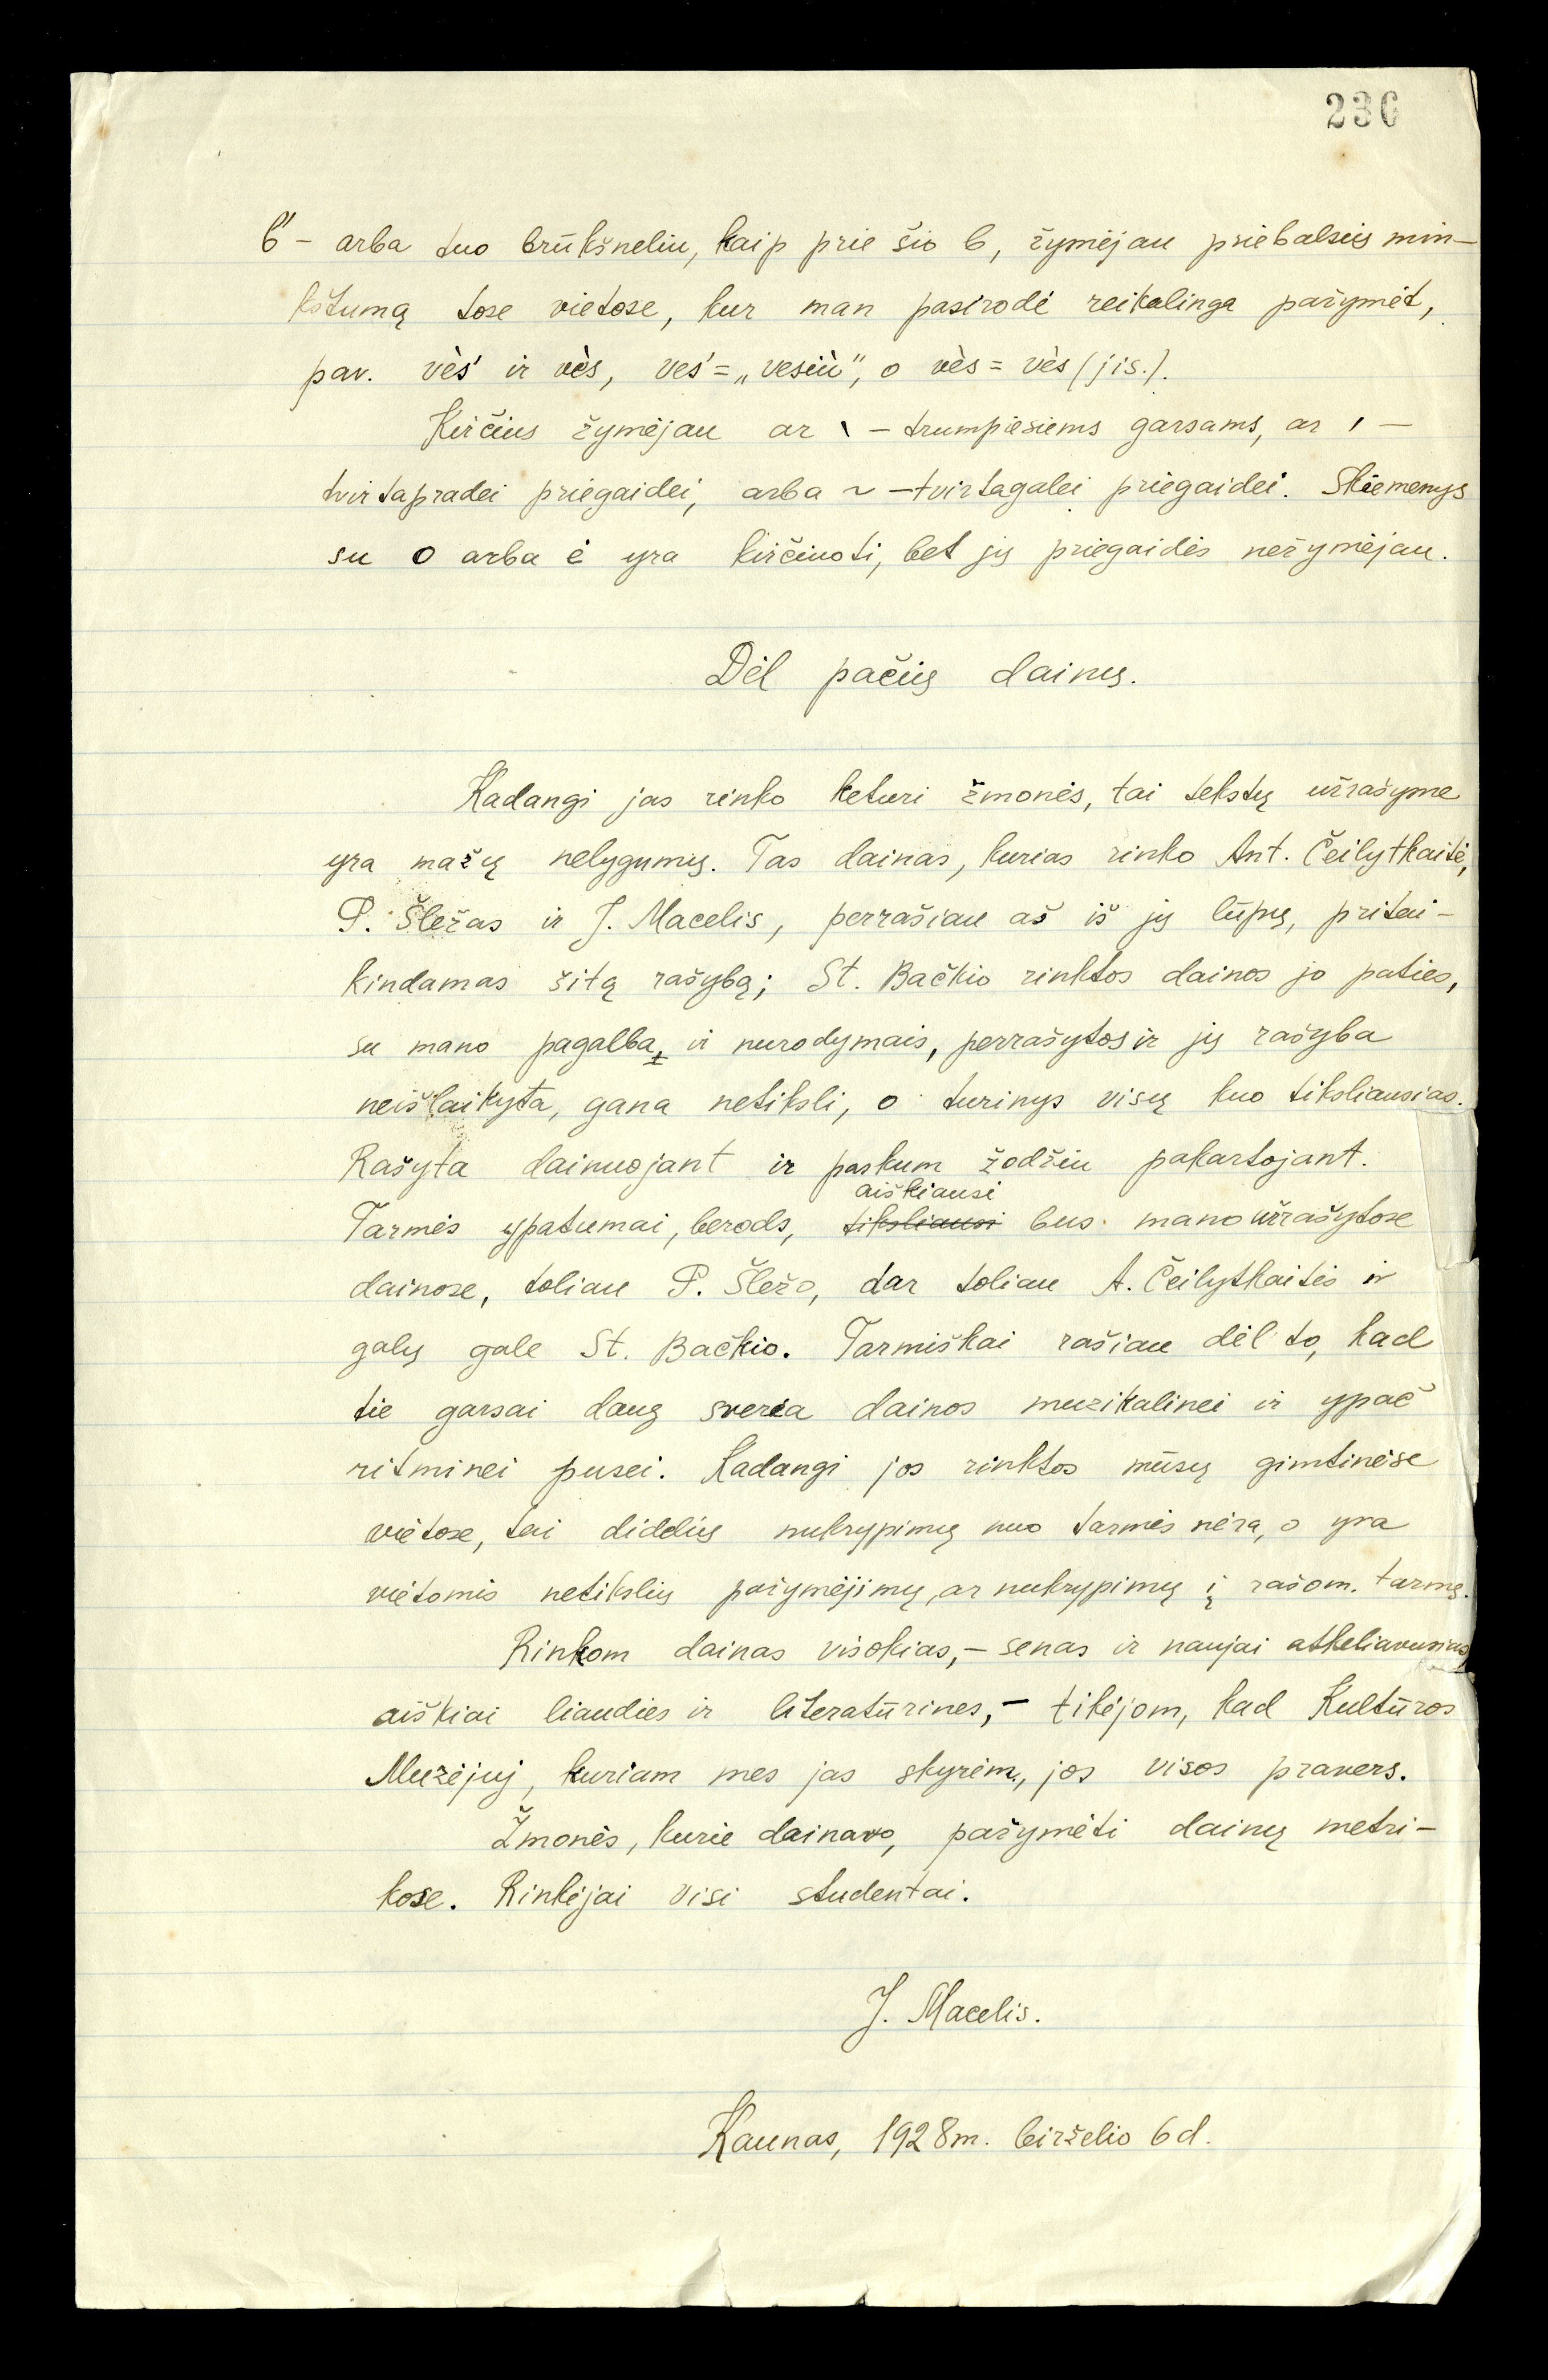 230
b' – arba tuo brūkšneliu, kaip prie šio b, žymėjau priebalsių min-
kštumą tose vietose, kur man pasirodė reikalinga pažymėt,
pav. vès' ir vès, ves' = „vesiù", o vès = vès (jis.).
Kirčius žymėjau ar \ – trumpiesiems garsams, ar ′ –
tvirtapradei priegaidei, arba ~ – tvirtagalei priegaidei. Skiemenys
su o arba ė yra kirčiuoti, bet jų priegaidės nežymėjau.
Dėl pačių dainų.
Kadangi jas rinko keturi žmonės, tai tekstų užrašyme
yra mažų nelygumų. Tas dainas, kurias rinko Ant. Čeilytkaitė,
P. Šležas ir J. Macelis, perrašiau aš iš jų lūpų, pritai-
kindamas šitą rašybą; St. Bačkio rinktos dainos jo paties,
su mano pagalba, ir nurodymais, perrašytos ir jų rašyba
neišlaikyta, gana netiksli, o turinys visų kuo tiksliausias.
Rašyta dainuojant ir paskum žodžiu pakartojant.
aiškiausi
Tarmės ypatumai, berods, tiksliausi bus mano užrašytose
dainose, toliau P. Šležo, dar toliau A. Čeilytkaitės ir
galų gale St. Bačkio. Tarmiškai rašiau dėl to, kad
tie garsai daug sveria dainos muzikalinei ir ypač
ritminei pusei. Kadangi jos rinktos mūsų gimtinėse
vietose, tai didelių nukrypimų nuo tarmės nėra, o yra
vietomis netikslių pažymėjimų, ar nukrypimų į rašom. tarmę.
Rinkom dainas visokias, – senas ir naujai atkeliavusias,
aiškiai liaudies ir literatūrines, – tikėjom, kad Kultūros
Muzėjuj, kuriam mes jas skyrėm, jos visos pravers.
Žmonės, kurie dainavo, pažymėti dainų metri-
kose. Rinkėjai visi studentai.
J. Macelis.
Kaunas, 1928 m. birželio 6 d.